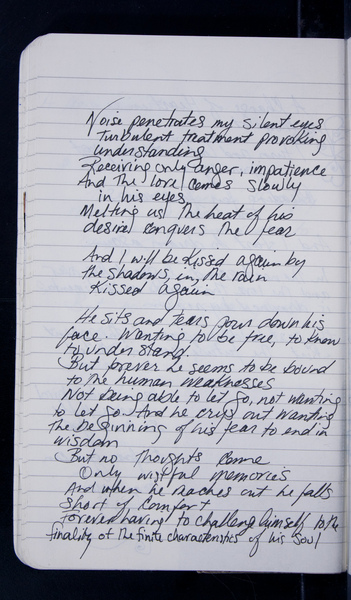 Noise penetrates my silent eyes
Turbulent treatment provoking
understanding
Receiving only anger, impatience
And The love comes slowly
in his eyes
Melting us The heat of his
desire conquers The fear
And I will be kissed again by
the shadows, in, the rain
Kissed again
He sits and tears pour down his
face. Wanting to be free, to know
to understand.
But forever he seems to be bound
to the human weaknesses
Not being able to let go, not wanting
to let go And he crys out wanting
The beginning of his fear to end in
wisdom
But no Thoughts come
Only wistful memories
And when he reaches out he falls
short of comfort
Forever having to challenge himself to the
finality of the finite characteristics of his soul